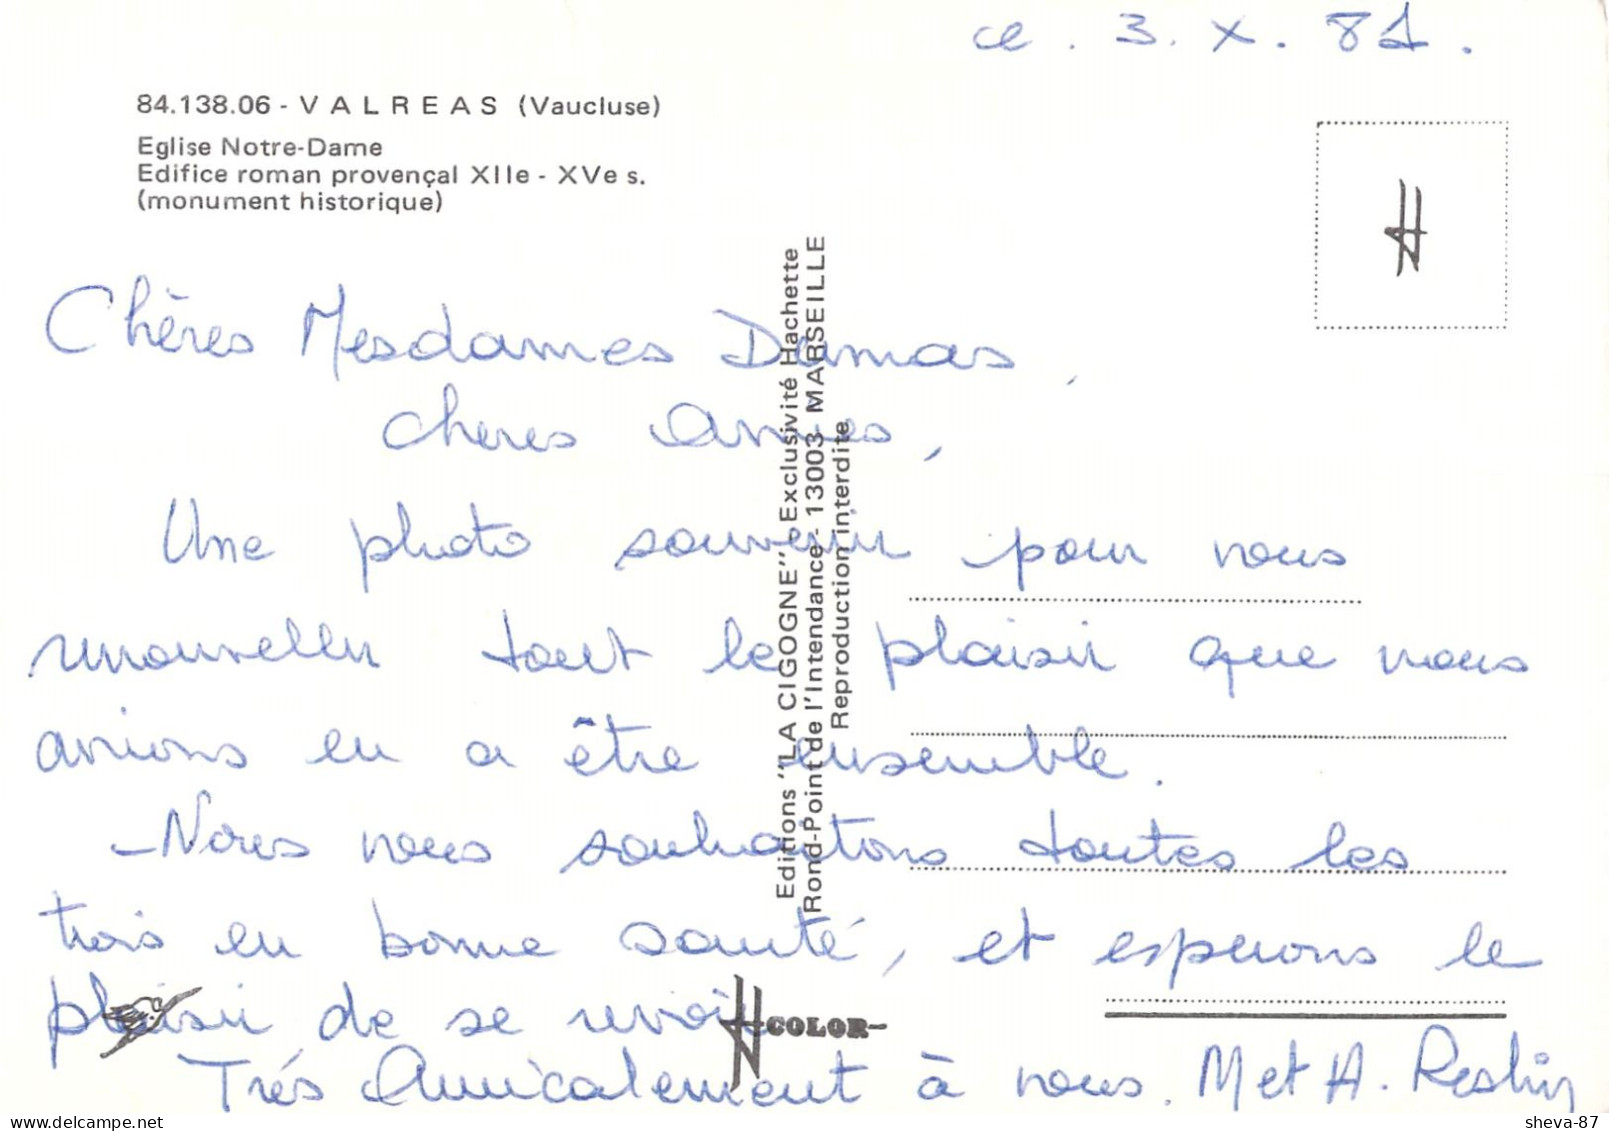 ce. 3. X. 81.
84.138.06 - VALREAS (Vaucluse)
Eglise Notre-Dame
Edifice roman provençal XIIe - XVe s.
(monument historique)
Chères Mesdames Damas,
chères Amies,
Une photo souvenir pour vous
renouveller tout le plaisir que nous
avions eu a être ensemble.
- Nous vous souhaitons toutes les
trois en bonne santé, et esperons le
plaisir de se revoir
Très Amicalement à vous. M et A.
Editions "LA CIGOGNE" - Exclusivité Hachette
Rond-Point de l'Intendance - 13003 MARSEILLE
Reproduction interdite
COLOR
sheva-87